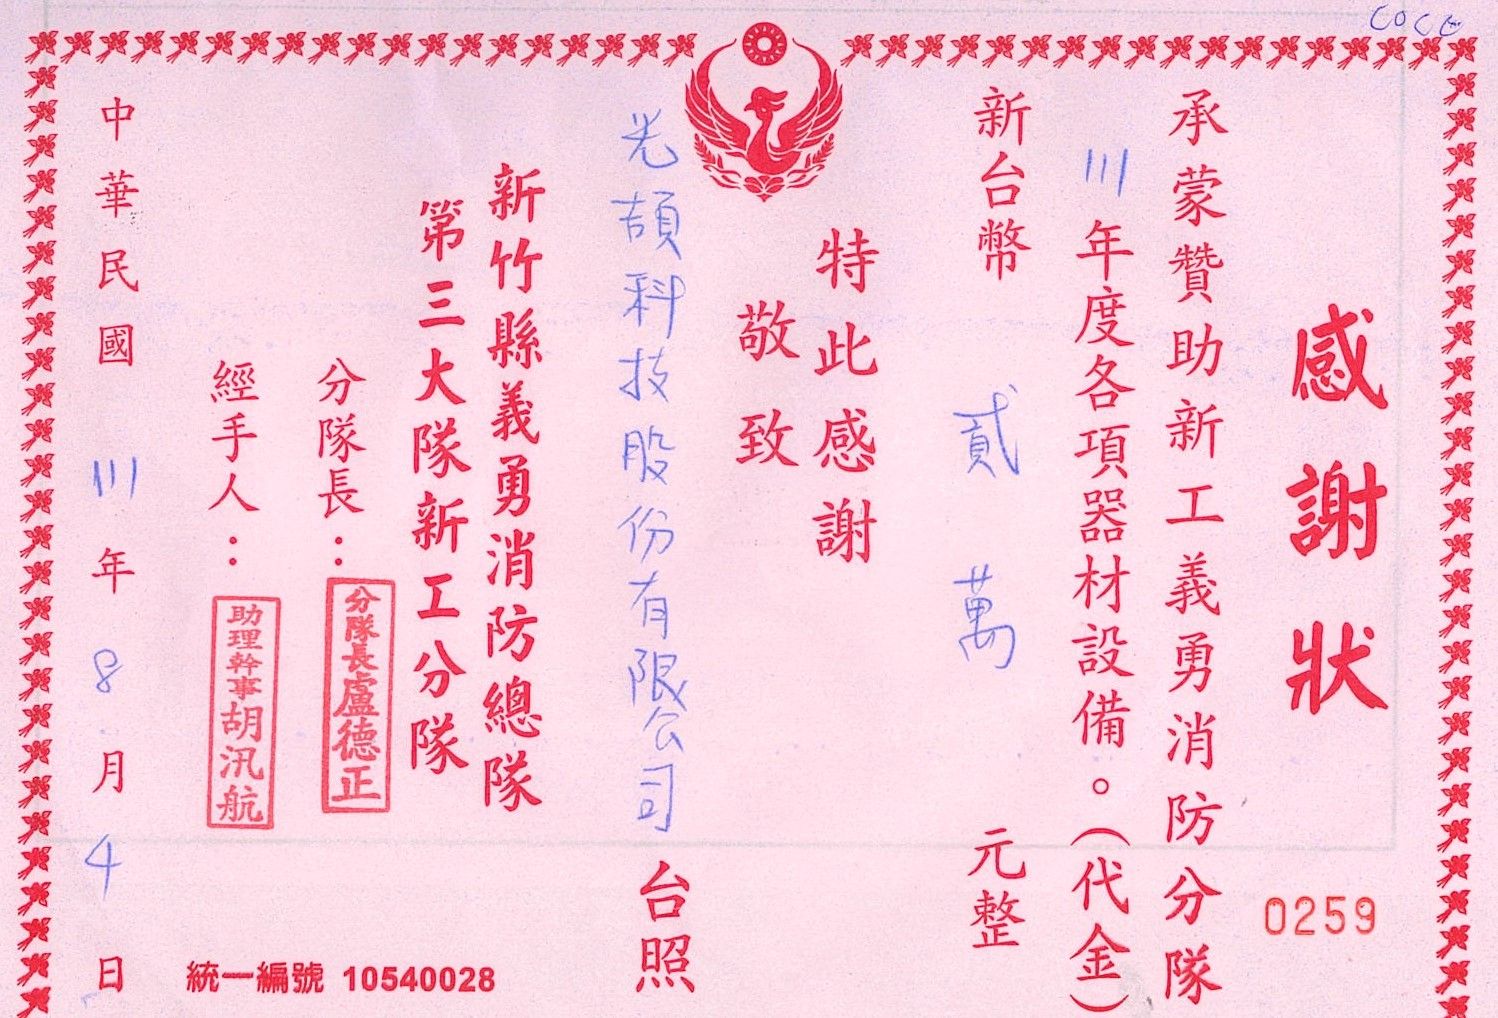 COCE
感謝狀
0259
承蒙贊助新工義勇消防分隊
111年度各項器材設備。(代金)
新台幣 貳 萬 元整
特此感謝
敬致
光頡科技股份有限公司 台照
新竹縣義勇消防總隊
第三大隊新工分隊
分隊長：
分隊長盧德正
經手人：
助理幹事胡汛航
中華民國 111 年 8 月 4 日
統一編號 10540028